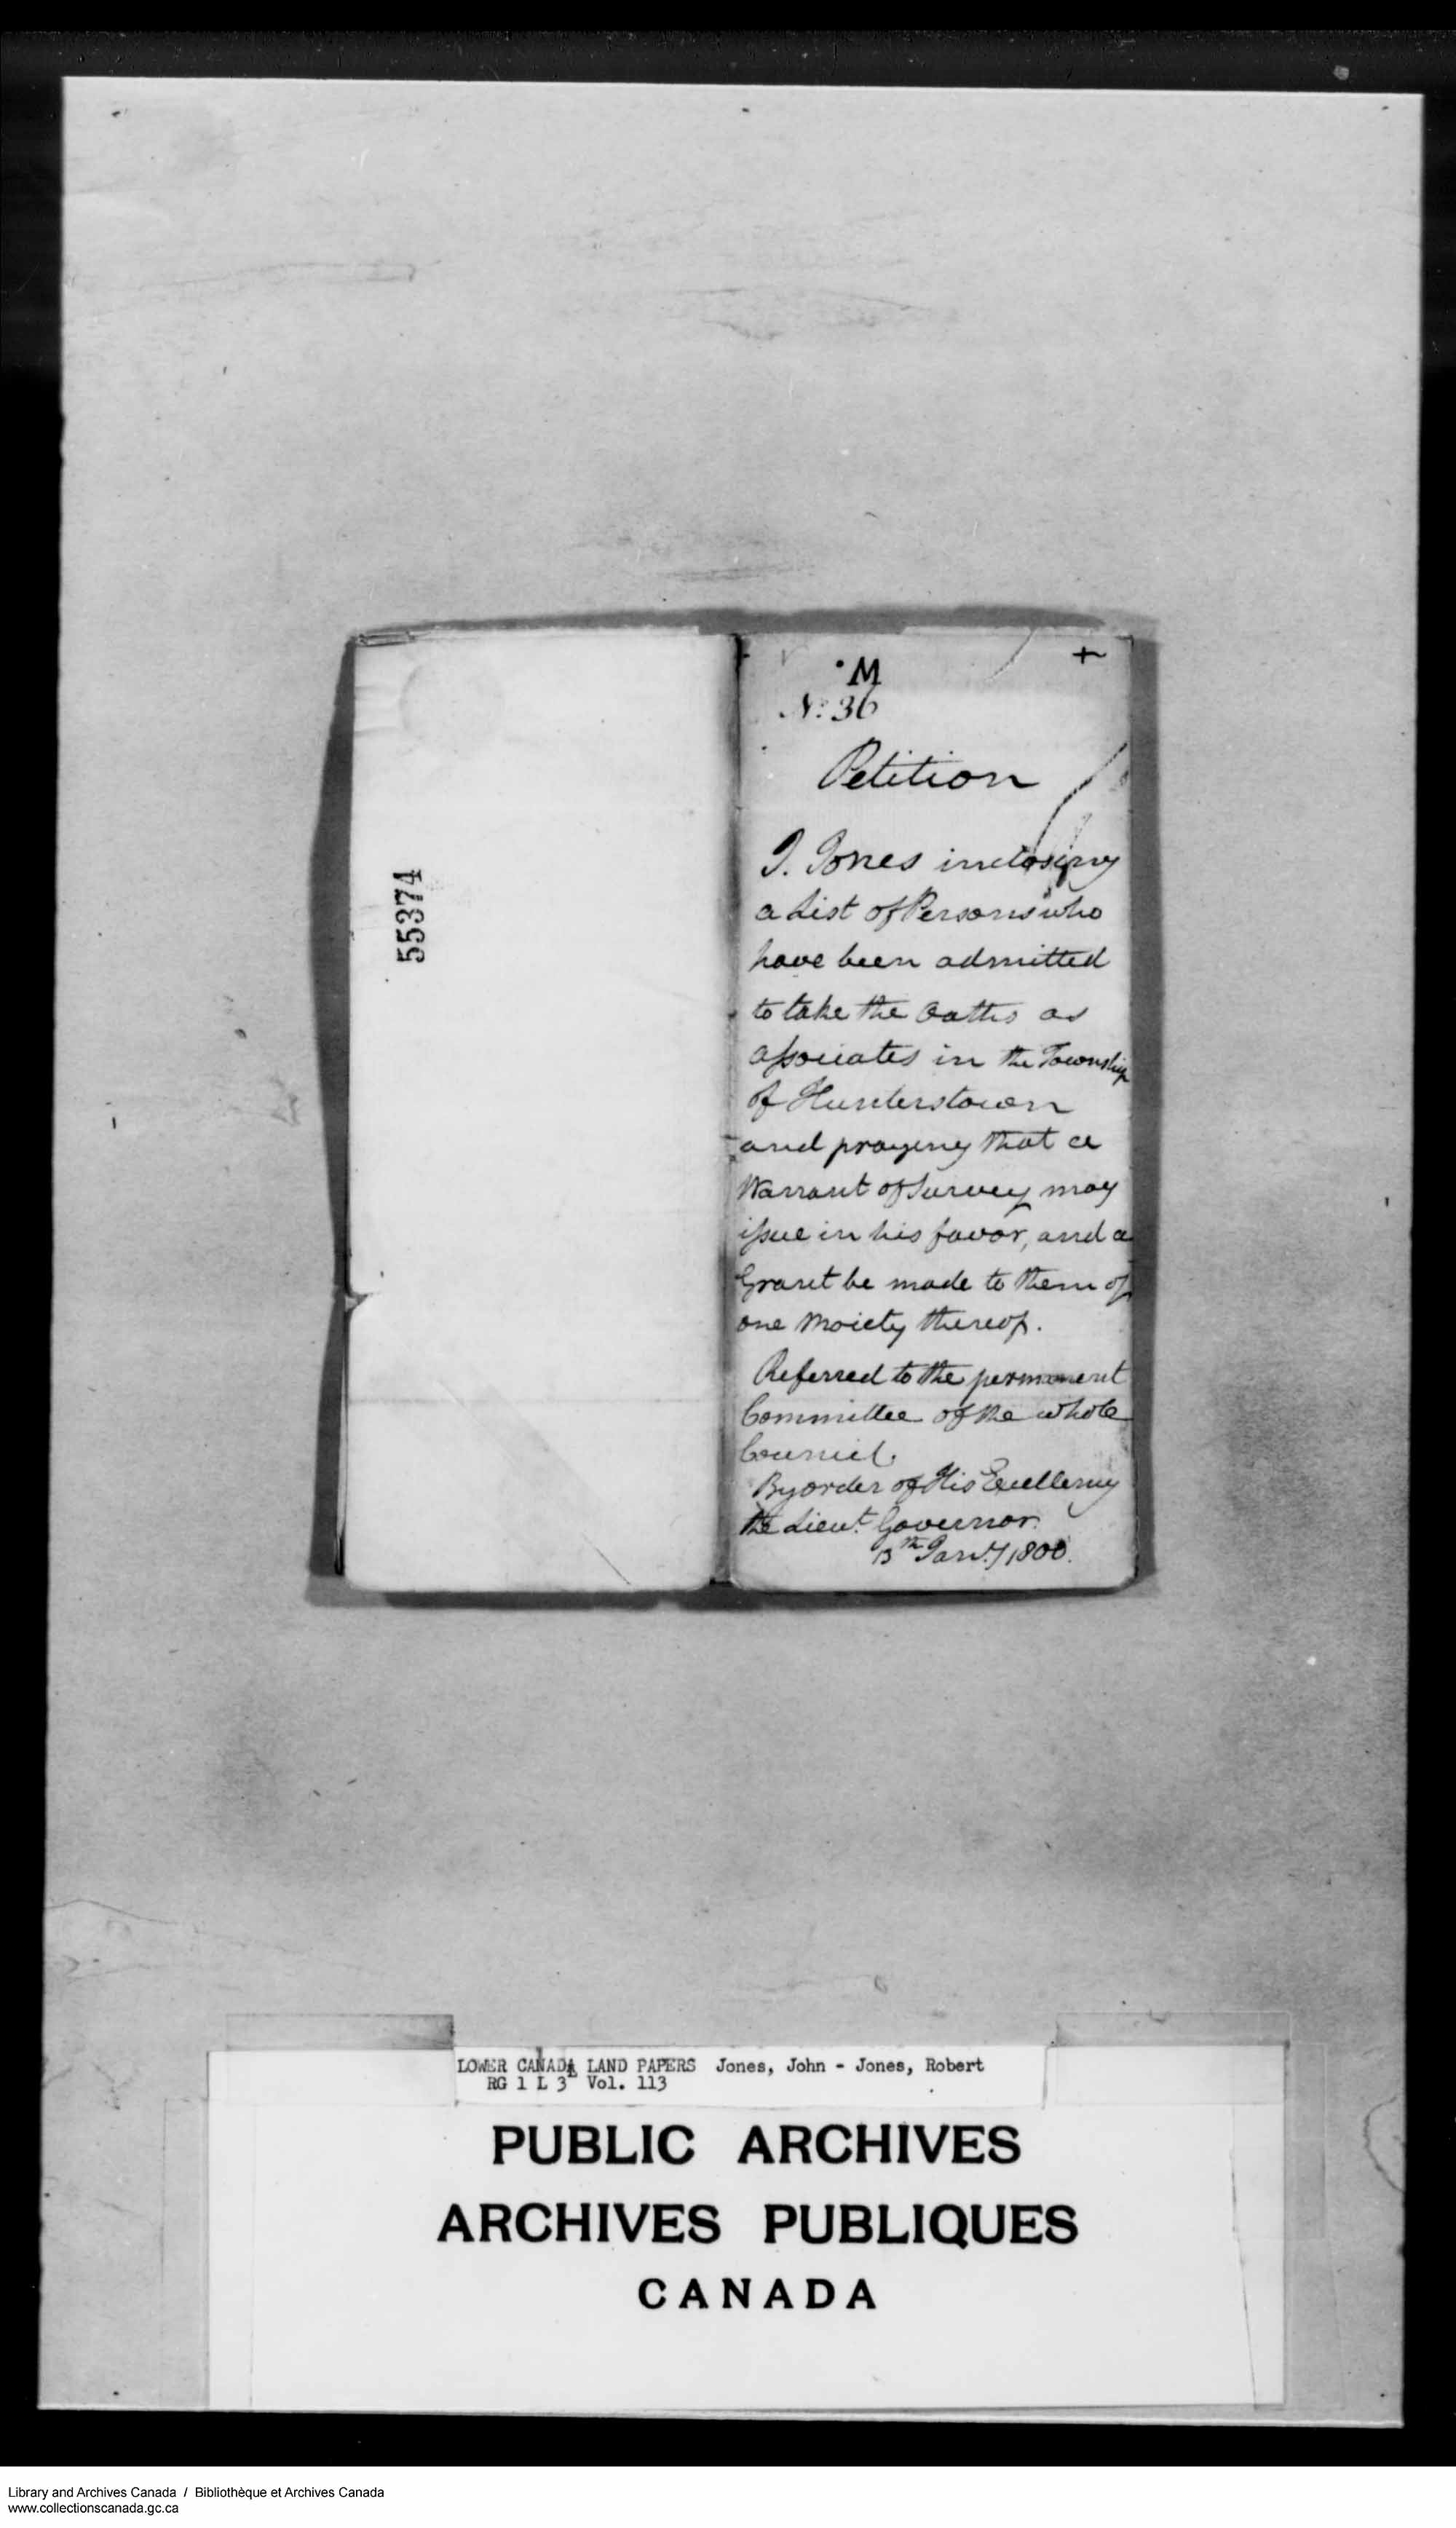 55374
M
+
No. 36
Petition
J. Jones inclosing
a List of Persons who
have been admitted
to take the Oaths as
associates in the Township
of Hunterstown
and praying that a
Warrant of Survey may
issue in his favor, and a
Grant be made to them of
one Moiety thereof.
Referred to the permanent
Committee of the whole
Council.
By order of His Excellency
the Lieut. Governor.
13th Jany. 1800.
LOWER CANADA LAND PAPERS Jones, John - Jones, Robert
RG 1 L 3L Vol. 113
PUBLIC ARCHIVES
ARCHIVES PUBLIQUES
CANADA
Library and Archives Canada / Bibliothèque et Archives Canada
www.collectionscanada.gc.ca